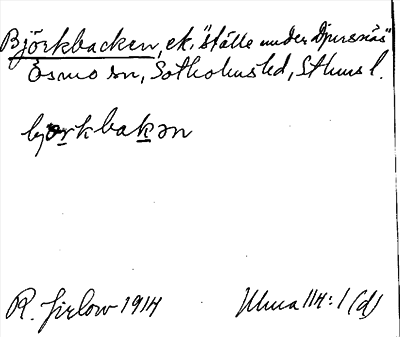 Björkbacken, ek. "ställe under Djursnäs"
Ösmo sn, Sotholms hd, Sthms l.
bjørkbakən
R. Firlow 1914
Ulma 114:1 (d)